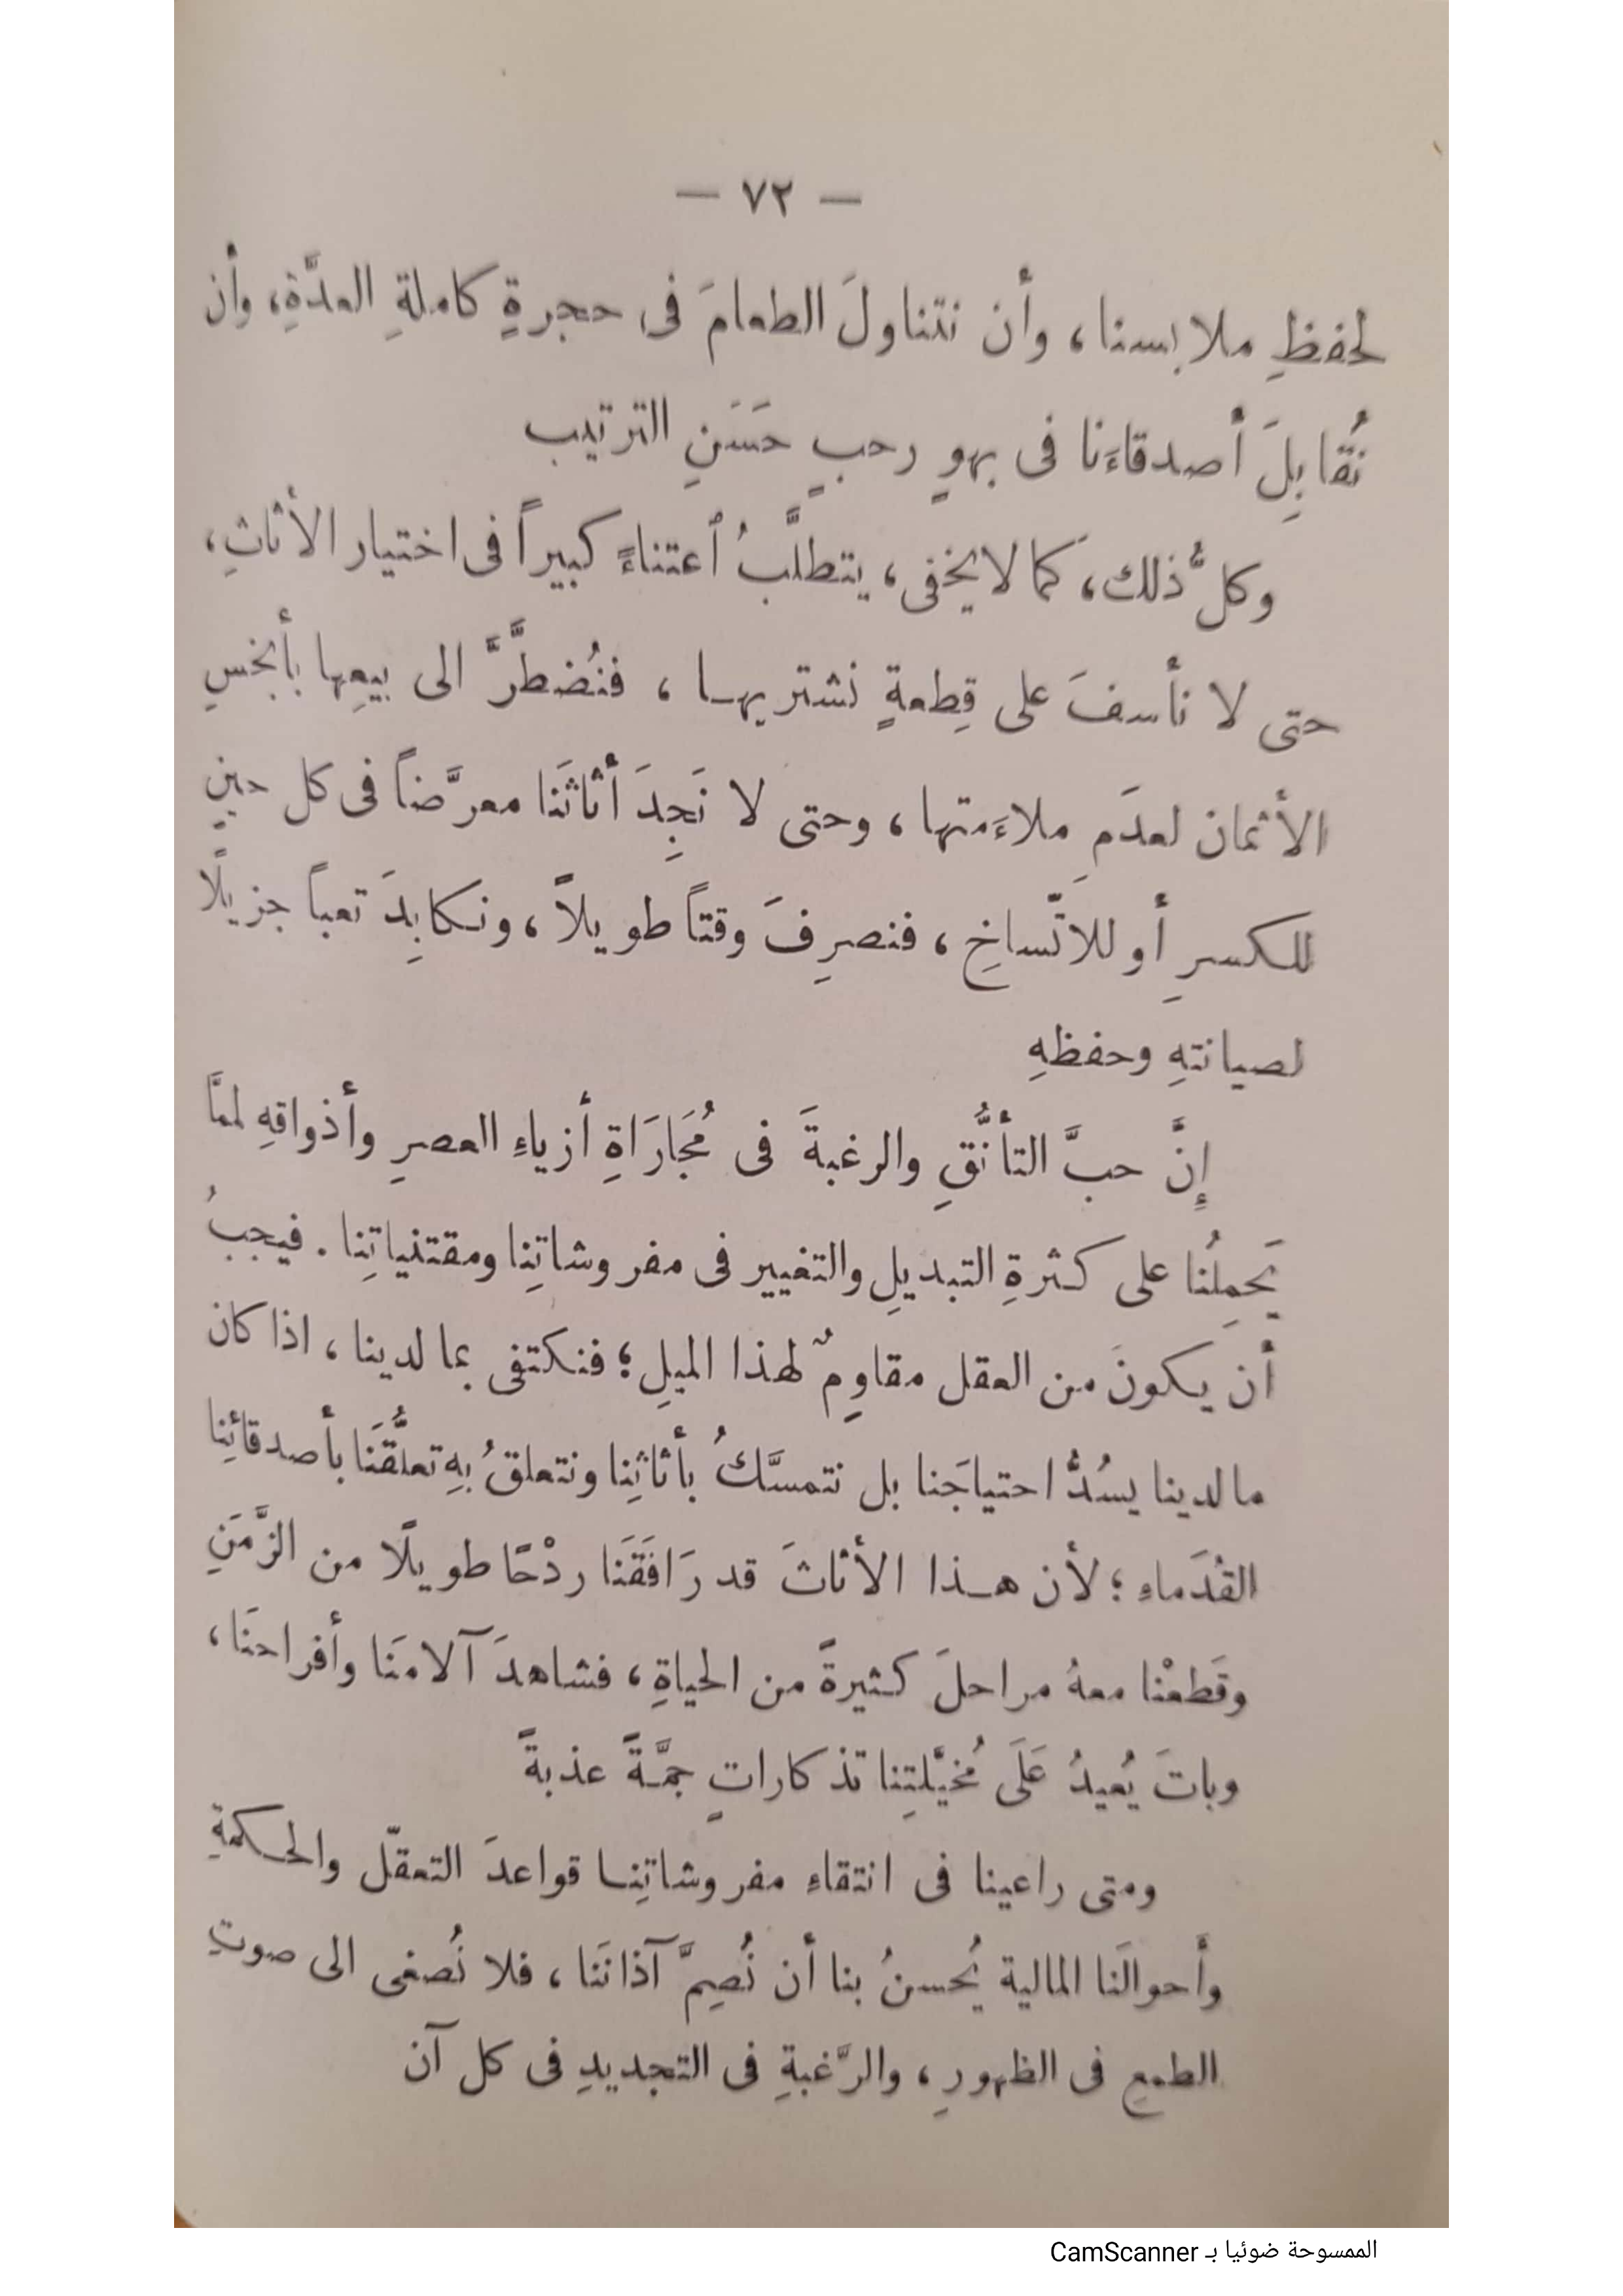 — ٧٢ —
لحفظِ ملابسنا، وأن نتناولَ الطعامَ فى حجرةٍ كاملةِ العدَّةِ، وأن
نُقابِلَ أصدقاءَنا فى بهوٍ رحبٍ حَسَنِ الترتيب
وكلُّ ذلك، كما لا يخفى، يتطلَّبُ اعتناءً كبيراً فى اختيار الأثاثِ،
حتى لا نأسفَ على قِطعةٍ نشتريها، فنُضطرَّ الى بيعِها بأبخسِ
الأثمان لعدَمِ ملاءَمتها، وحتى لا نَجِدَ أثاثَنا معرَّضاً فى كل حينٍ
للكسرِ أو للاتّساخِ، فنصرِفَ وقتاً طويلاً، ونكابِدَ تعباً جزيلًا
لصيانتهِ وحفظهِ
إِنَّ حبَّ التأنُّقِ والرغبةَ فى مُجَارَاةِ أزياءِ العصرِ وأذواقهِ لممَّا
يَحمِلُنا على كثرةِ التبديلِ والتغيير فى مفروشاتِنا ومقتنياتِنا. فيجبُ
أن يكونَ من العقل مقاوِمٌ لهذا الميلِ؛ فنكتفى بما لدينا، اذا كان
ما لدينا يسُدُّ احتياجَنا بل نتمسَّكُ بأثاثِنا ونتعلقُ بهِ تعلُّقَنا بأصدقائِنا
القُدَماءِ؛ لأن هذا الأثاثَ قد رَافَقَنا ردْحًا طويلًا من الزَّمَنِ
وقَطعْنا معهُ مراحلَ كثيرةً من الحياةِ، فشاهدَ آلامَنا وأفراحنَا،
وباتَ يُعيدُ عَلَى مُخيَّلتِنا تذكاراتٍ جمَّةً عذبةً
ومتى راعينا فى انتقاءِ مفروشاتِنا قواعدَ التعقّل والحكمةِ
وأَحوالَنا المالية يُحسنُ بنا أن نُصِمَّ آذانَنا، فلا نُصغى الى صوتِ
الطمعِ فى الظهورِ، والرَّغبةِ فى التجديدِ فى كل آن
الممسوحة ضوئيا بـ CamScanner